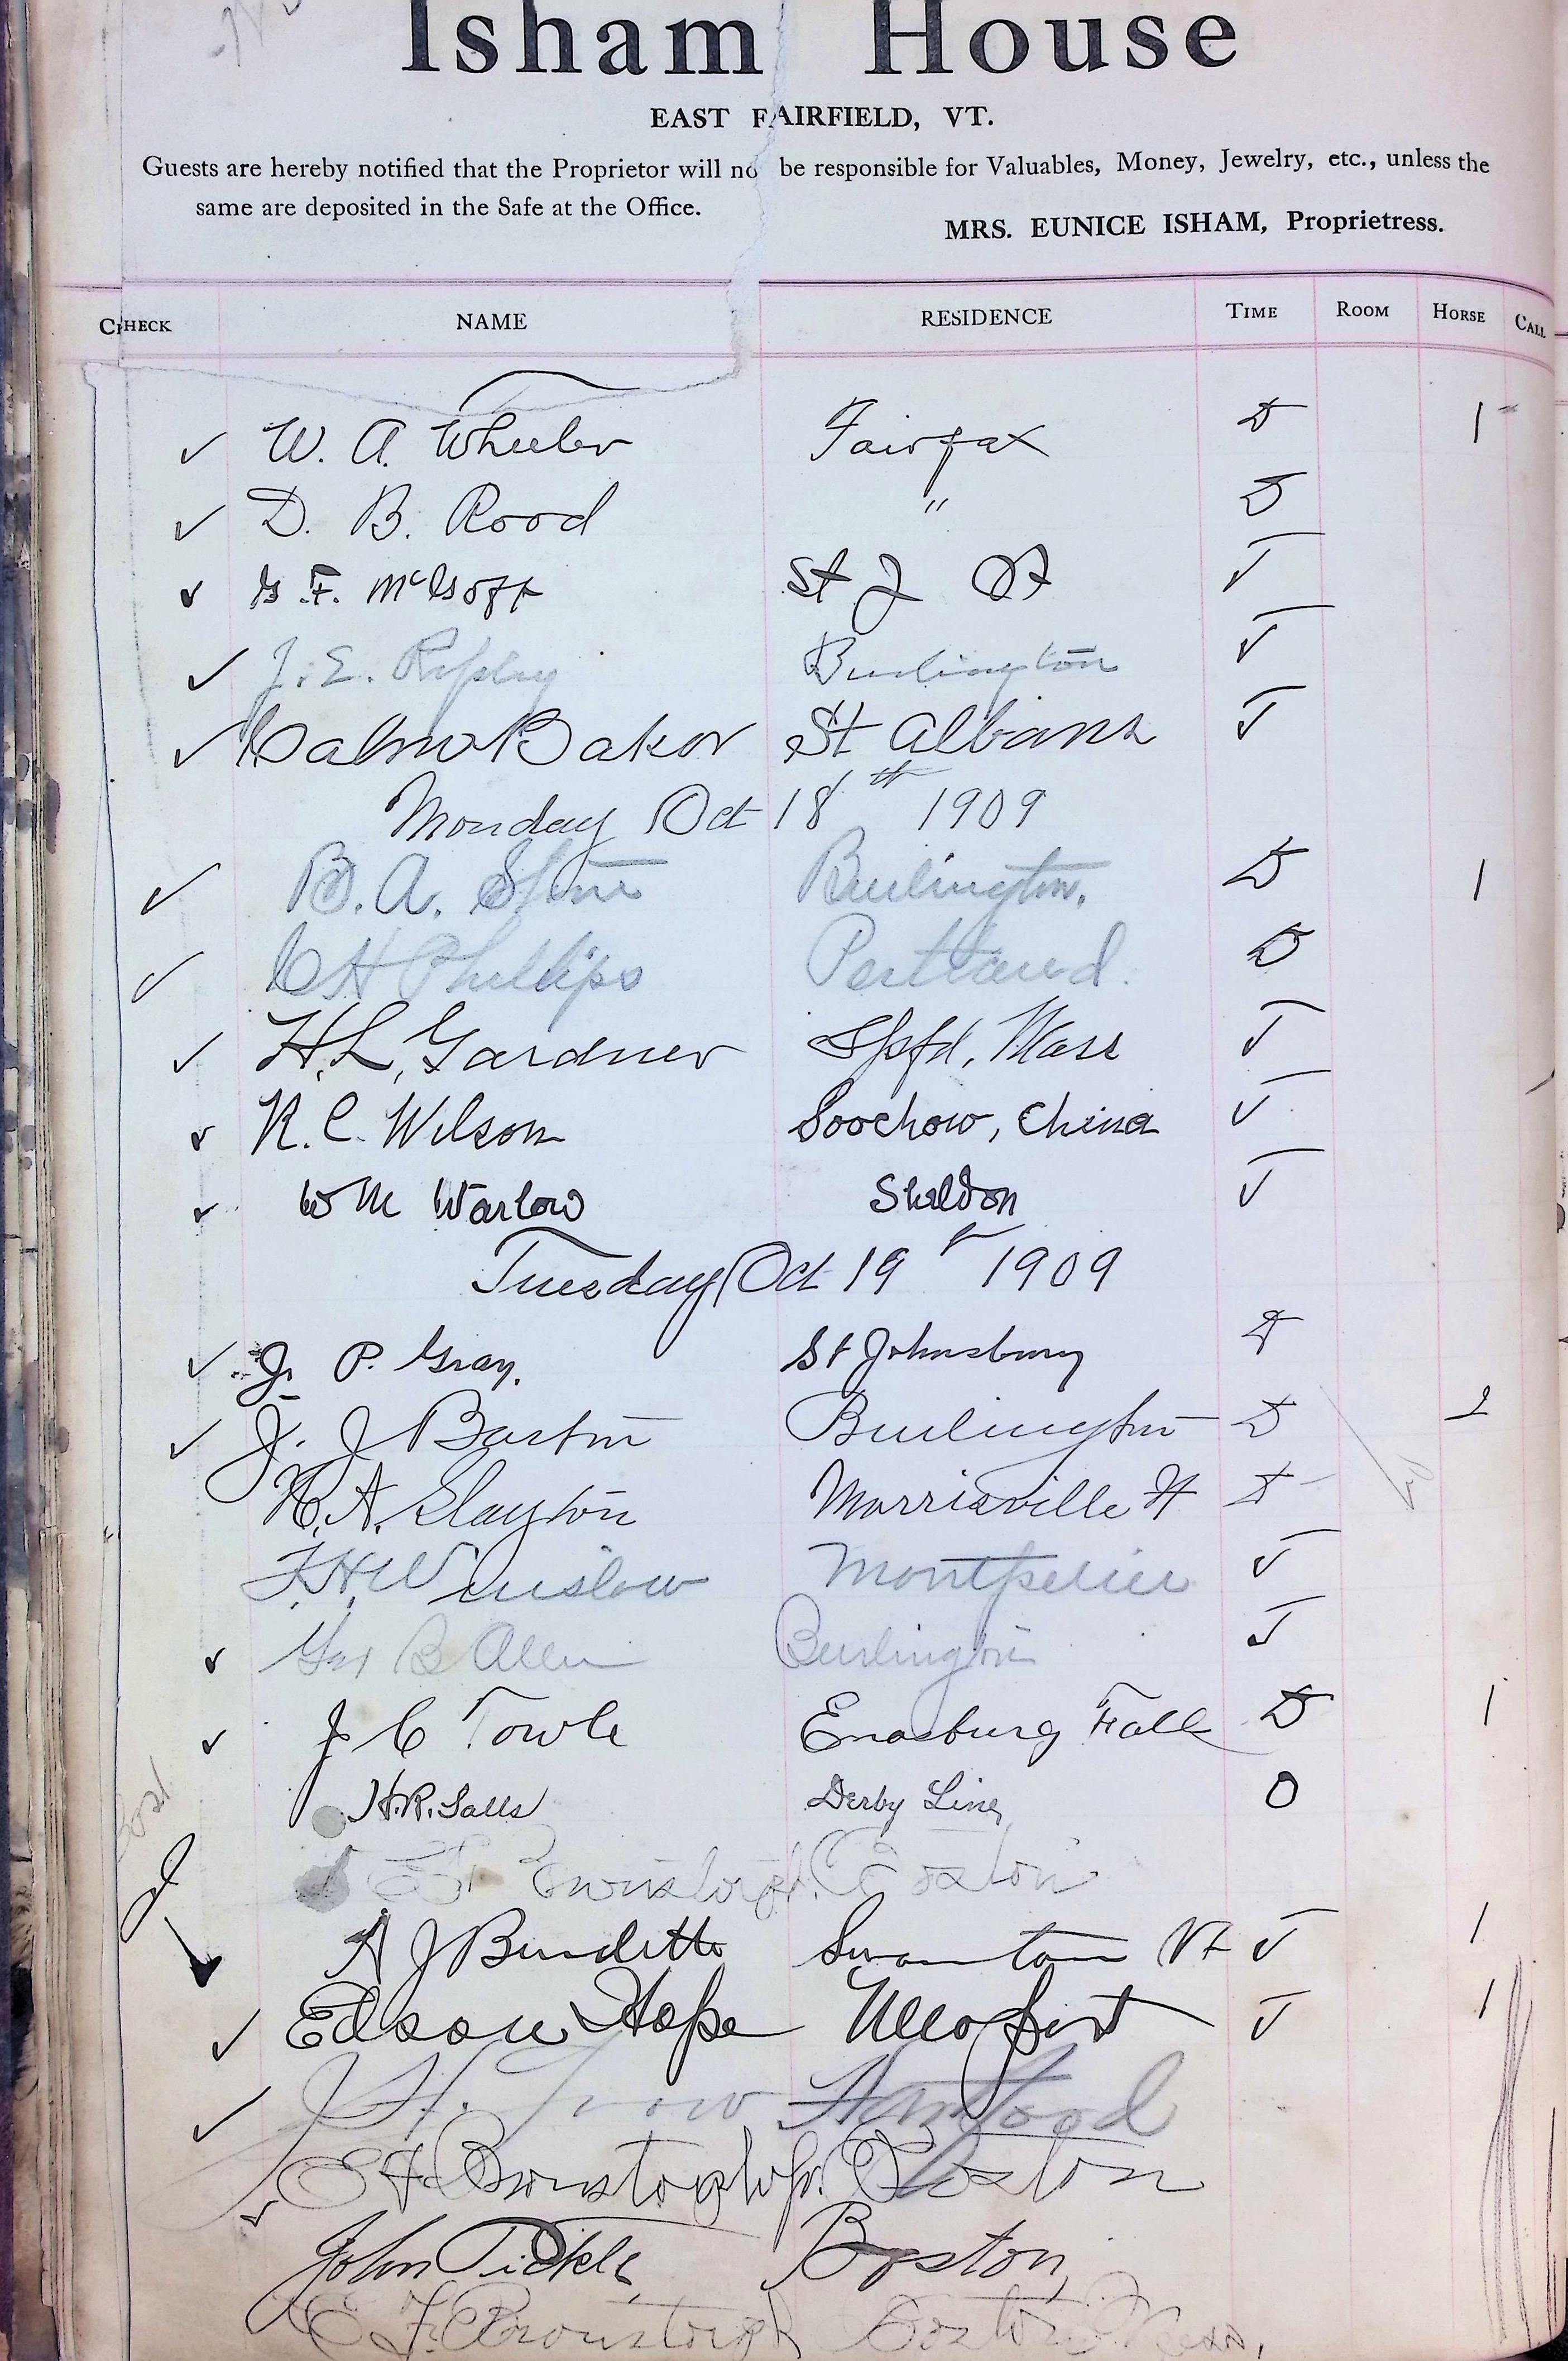 Isham House
EAST FAIRFIELD, VT.
Guests are hereby notified that the Proprietor will no be responsible for Valuables, Money, Jewelry, etc., unless the
same are deposited in the Safe at the Office.
MRS. EUNICE ISHAM, Proprietress.
CHECK NAME RESIDENCE TIME ROOM HORSE CALL
✓ W. A. Wheeler Fairfax D 1
✓ D. B. Rood " D
✓ F. St J
✓ J. E. Ripley Burlington
✓ Baker St Albans
Monday Oct 18th 1909
✓ B. A. Burlington. D 1
✓ C H Phillips Portland. D
✓ H. L. Gardner Spfd, Mass
✓ R. C. Wilson Soochow, China
✓ W M Warlow Sheldon
Tuesday Oct 19 1909
✓ J. P. Gray. St Johnsbury
✓ J. J Barton Burlington D 2
H. A. Slayton Morrisville Vt
F. H. Winslow Montpelier
✓ Geo B Allen Burlington
✓ J C Towle Enosburg Falls D 1
H. R. Salls Derby Line O
Boston
A J Burdette Swanton Vt 1
✓ Edson Hope Newport 1
✓ J. H. Hartford
✓ E F Boston
John Tickle, Boston,
E. F. Boston Mass,